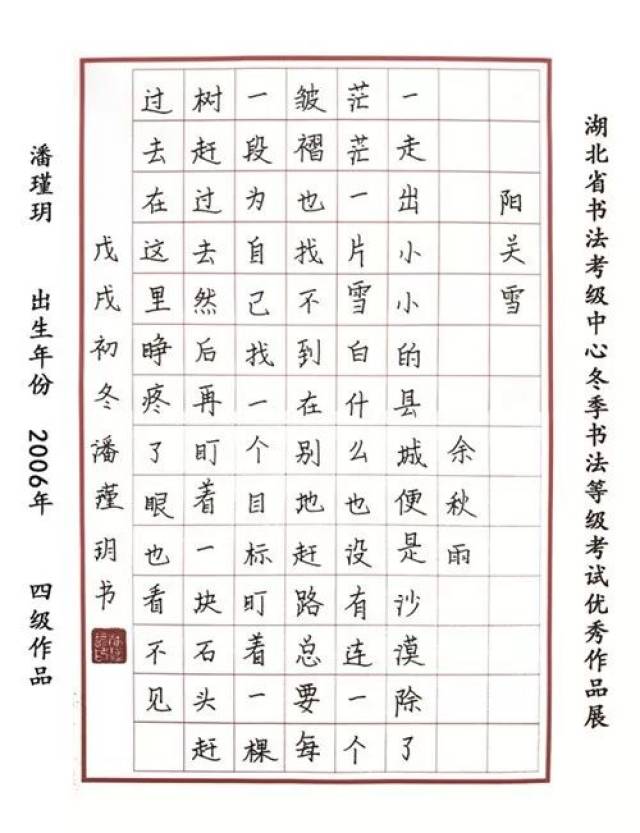 湖北省书法考级中心冬季书法等级考试优秀作品展
阳关雪
余秋雨
一走出小小的县城便是沙漠除了
茫茫一片雪白什么也没有连一个
皱褶也找不到在别地赶路总要每
一段为自己找一个目标盯着一棵
树赶过去然后再盯着一块石头赶
过去在这里睁疼了眼也看不见
戊戌初冬潘瑾玥书
潘瑾玥 出生年份 2006年 四级作品